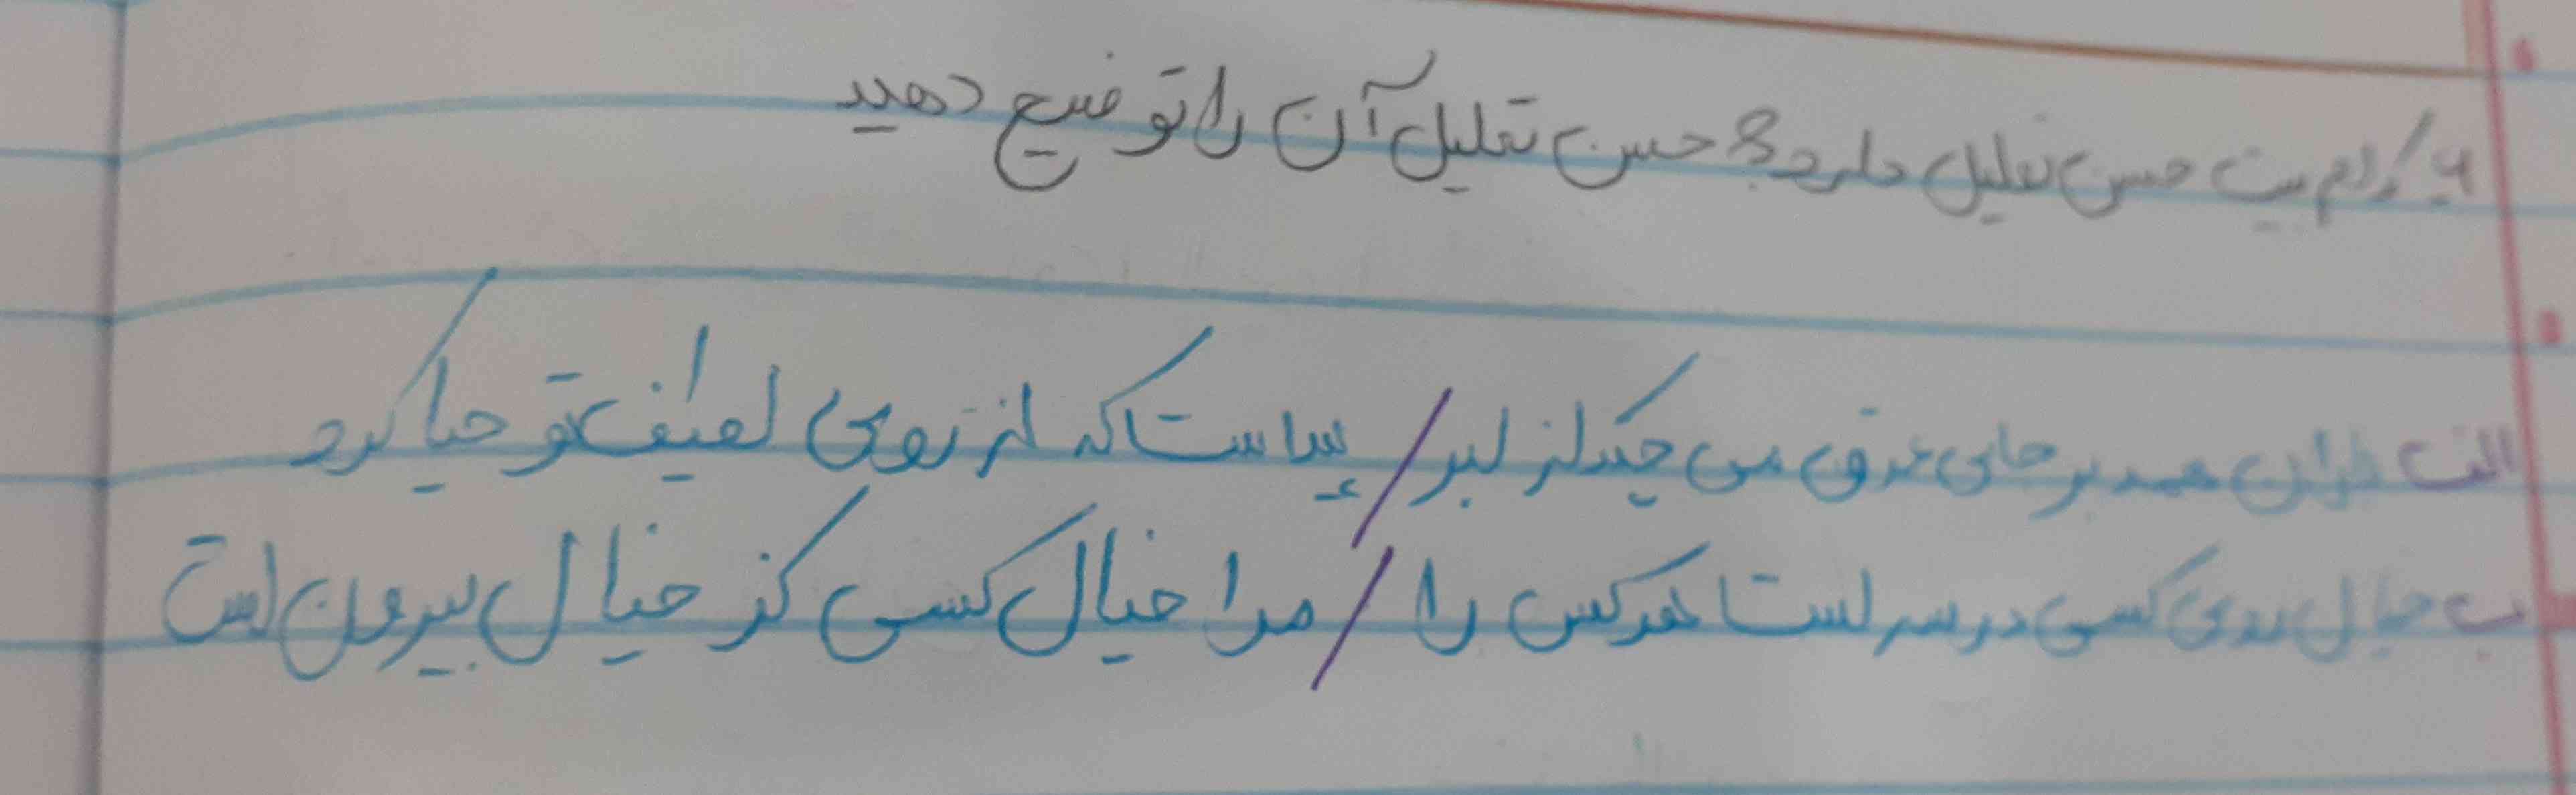 ۶ / کدام بیت حسن تعلیل دارد؟ حسن تعلیل آن را توضیح دهید
الف باران همه بر جای عرق می چکد از ابر / پیداست که از روی لطیف تو حیا کرد
ب خیال روی کسی در سر است هر کس را / مرا خیال کسی کز خیال بیرون است